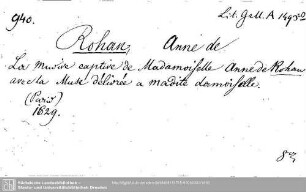 940.
Lit. Gall. A 1495
Rohan, Anne de
La Musive captive de Madamoiselle Anne de Rohan
avec la Muse délivrée a madite damoiselle.
(Paris)
1629.
8°,
Sächsische Landesbibliothek -
Staats- und Universitätsbibliothek Dresden